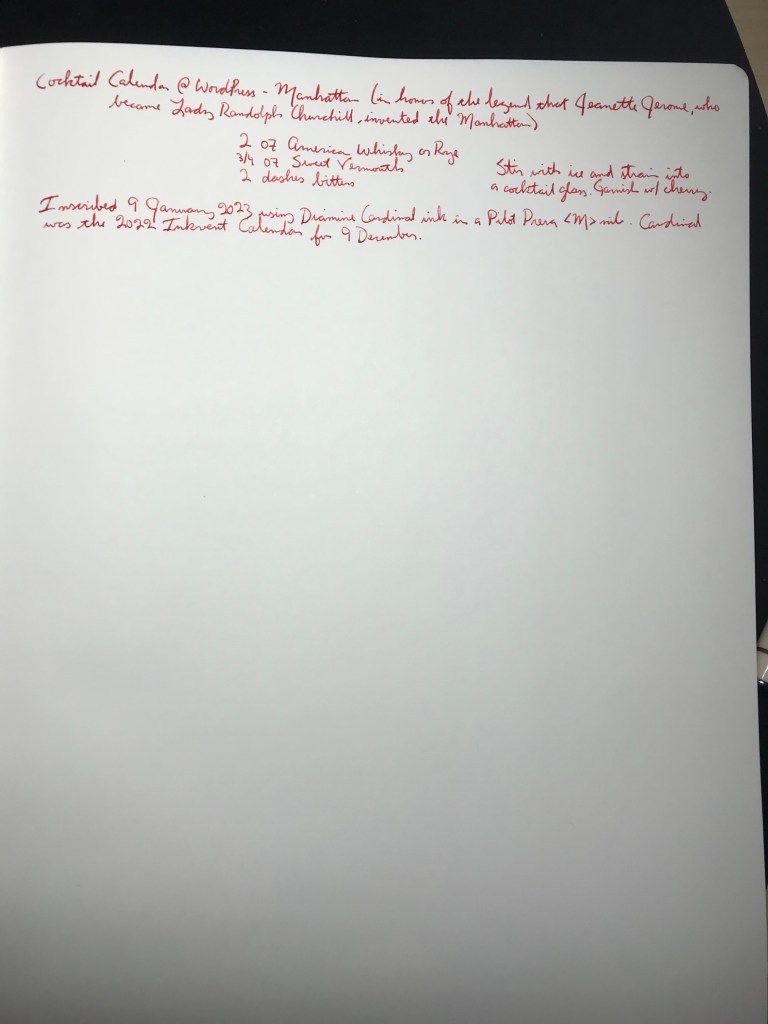 Cocktail Calendar @ WordPress - Manhattan (in honor of the legend that Jeanette Jerome, who
became Lady Randolph Churchill, invented the Manhattan)
2 oz America Whiskey or Rye
3/4 oz Sweet Vermouth
2 dashes bitters
Stir with ice and strain into
a cocktail glass. Garnish w/ cherry.
Inscribed 9 January 2023 using Diamine Cardinal ink in a Pilot Prera <M> nib. Cardinal
was the 2022 Inkvent Calendar for 9 December.